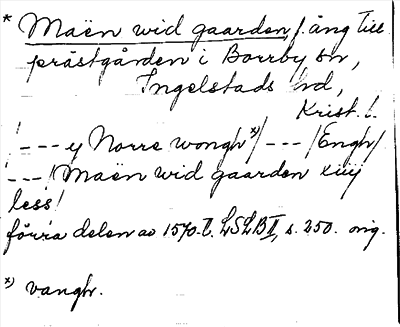 * Maën wid gaarden, f. äng till
prästgården i Borrby sn,
Ingelstads hd,
Krist. l.
/--- y Norre wongh *)/ --- /Engh/
---/ Maën wid gaarden xiiij
less/
förra delen av 1570-t. LSLB II, s. 250. orig.
*) vangh.